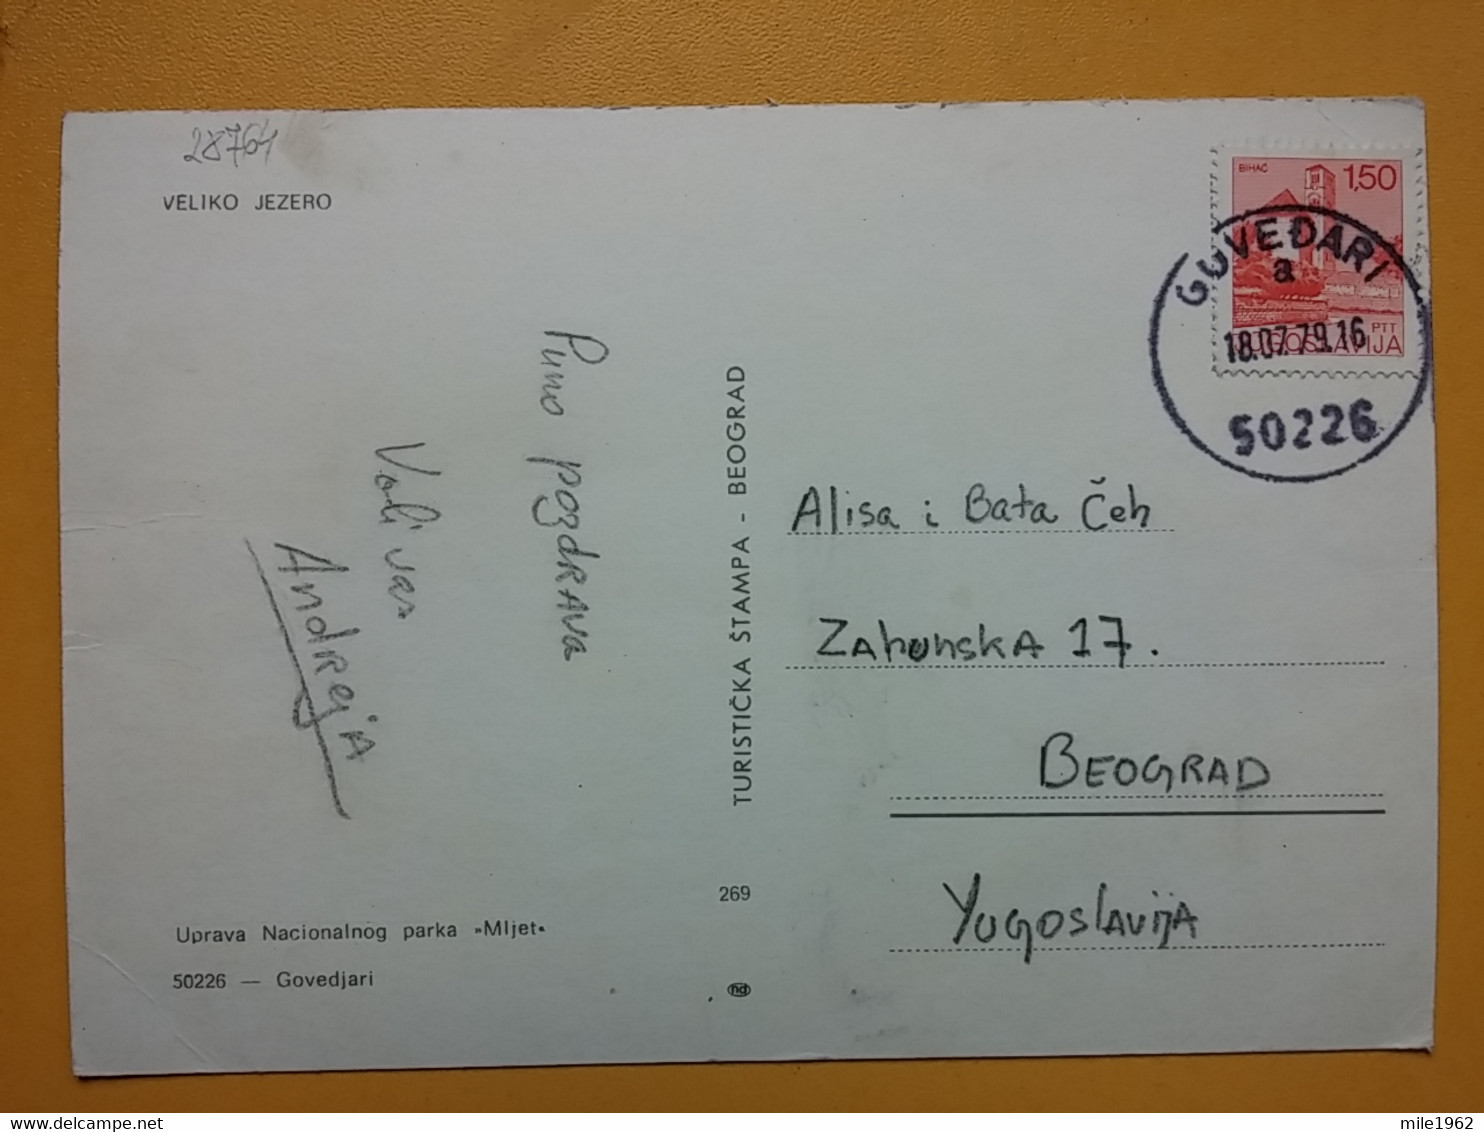 28764
VELIKO JEZERO
Puno pozdrava
Voli vas
Andreja
Uprava Nacionalnog parka »Mljet«
50226 — Govedjari
TURISTIČKA ŠTAMPA - BEOGRAD
269
BIHAĆ
1,50
PTT
JUGOSLAVIJA
GOVEĐARI
a
18.07.79.16
50226
Alisa i Bata Čeh
Zahumska 17.
BEOGRAD
Yugoslavija
mile1962